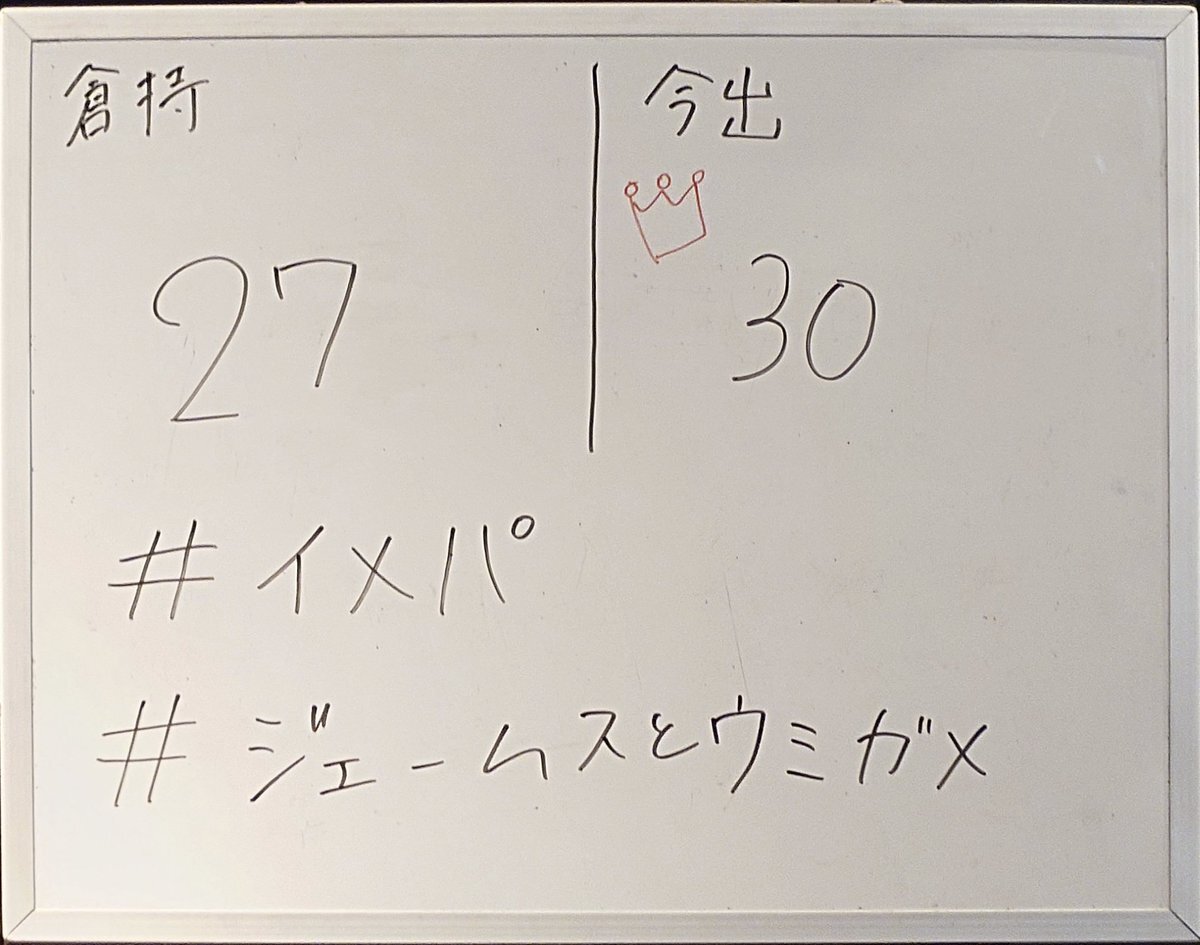 倉持 今出
27 30
#イメパ
#ジェームスとウミガメ